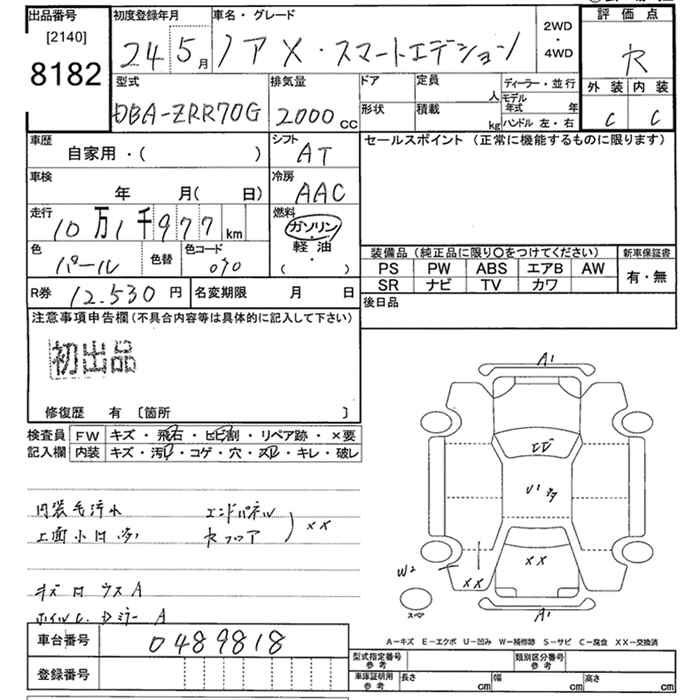 出品番号 初度登録年月 車名・グレード 2WD・4WD 評価点
[2140]
8182 24 5月 ノア X・スマートエディション R
型式 排気量 ドア 定員 人 ディーラー・並行 外装 内装
DBA-ZRR70G 2000cc 形状 積載 kg モデル年式 年 ハンドル 左・右 C C
車歴 シフト セールスポイント(正常に機能するものに限ります)
自家用・( ) AT
車検 冷房
年 月( 日) AAC
走行 燃料
10万1千977km ガソリン・軽油
色 色替 色コード ( ・ )
パール 070
装備品(純正品に限り○をつけてください) 新車保証書
PS PW ABS エアB AW 有・無
SR ナビ TV カワ
R券 12.530円 名変期限 月 日 後日品
注意事項申告欄(不具合内容等は具体的に記入して下さい)
初出品
修復歴 有 [箇所 ]
検査員 FW キズ・飛石・ヒビ割・リペア跡・×要
記入欄 内装 キズ・汚レ・コゲ・穴・スレ・キレ・破レ
内装毛汚れ エンドパネル
上面小凹 多 Rフロア ××
キズ凹 ウスA
ホイルC. Dミラー A
A1
U1 多
××
W2
××
A1
スペア
A-キズ E-エクボ U-凹み W-補修跡 S-サビ C-腐食 XX-交換済
車台番号 0489818
登録番号
型式指定番号 参考 類別区分番号 参考
車庫証明用 参考 長さ cm 幅 cm 高さ cm